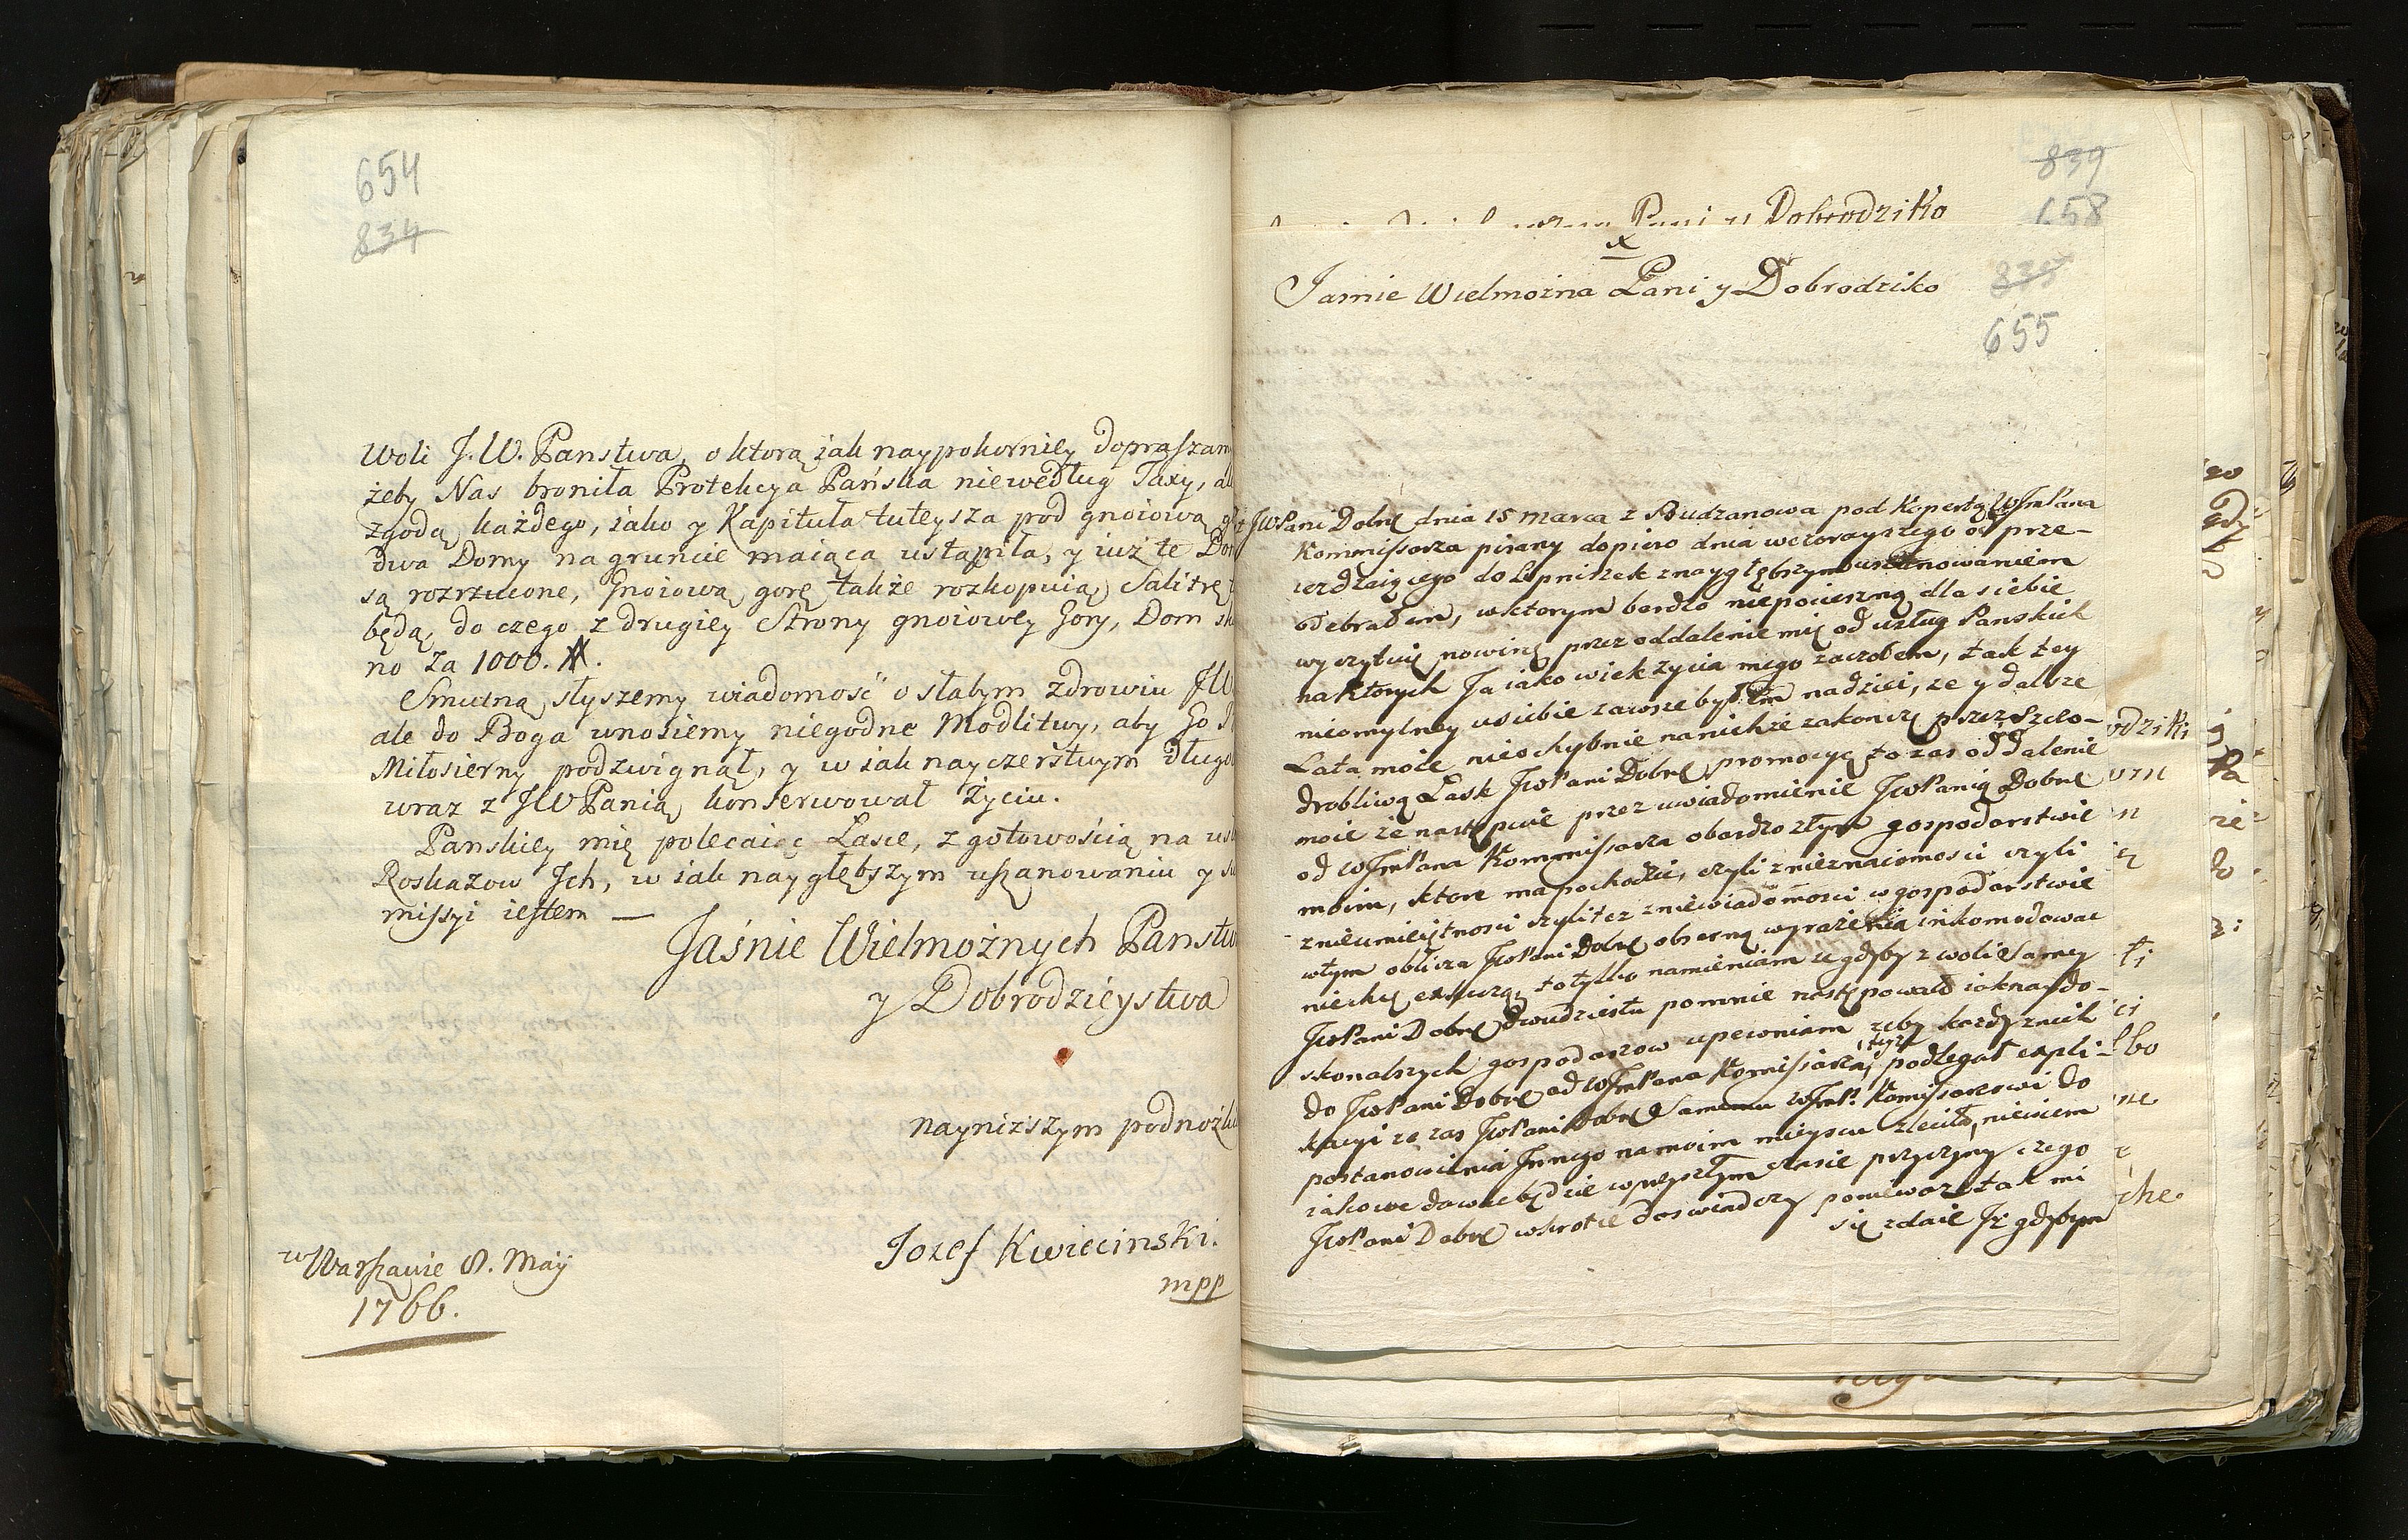 654
834
Woli J. W. Panstwa, o ktorą iak naypokorniey dopraszam
żeby Nas broniła Protekcya Pańska niewedług Taxy, al
zgodą każdego, iako y Kapituła tuteysza pod gnoiową g
dwa Domy na gruncie maiąca ustąpiła, y iuż te Dom
są rozrzucone, Gnoiową gorę także rozkopuią, Salitrę
będą, do czego z drugiey Strony gnoiowey Gory, Dom sk
no za 1000.
Smutną słyszemy wiadomość o słabym zdrowiu JW
ale do Boga unosiemy niegodne Modlitwy, aby Go
Miłosierny podzwignął, y w iak nayczerstwym długo
wraz z JWPanią konserwował Życiu.
Panskiey mię polecaiąc Łasce, z gotowością na us
Roskazow Ich, w iak nayglębszym uszanowaniu y su
missyi iestem —
Jaśnie Wielmożnych Panstw
y Dobrodzieystwa
naynizszym podnożk
Jozef Kwiecinski.
mpp
w Warszawie 8. Maÿ
1766.
839
658
Pani y Dobrodziko
Jasnie Wielmozna Pani y Dobrodziko
835
655
JWPani Dobrę dnia 15 marca z Budzanowa pod Kopertą WJmPana
Kommissarza pisany dopiero dnia wczorayszego od prze-
ieżdzaiącego do Lipniszek znaygłębszym uszanowaniem
odebrałem, wktorym bardzo niepocieszną dla siebie
wyczytuię nowinę przez oddalenie mię od usług Panskich
naktorych Ja iako wiek zycia mego zaczołem, tak tey
nieomylney usiebie zawsze byłem nadziei, ze y dalsze
Lata moie nieochybnie nanichze zakonczę przez Szczo-
drobliwą Łask JWPani Dobrę promocyę to zas oddalenie
moie że następuie przez uwiadomienie JWPanią Dobrę
od WJmPana Kommissarza obardzo złym gospodarstwie
moim, ktore ma pochodzić, czyli znieznaiomosci czyli
znieumieiętnosci czylitez zniewiadomosci w gospodarstwie
wtym oblicza JWPani Dobrę obszerną wyrażenia inkomodowac
niechcę exkuzą, to tylko namieniam iz gdyby z woli Samey
JWPani Dobrę dwudziestu pomnie następowało iaknaydo-
skonalszych gospodarzow upewniam zeby kazdy znich
do JWPani Dobrę od WJmPana Komissarza, teyze podlegał expli-
kacyi ze zas JWPani Dobrę Samemu WJmP. Komissarzowi do
postanowienia Innego na moim mieyscu zleciła, niewiem
iakowe dawać będzie wprzyszłym czasie przyczyny czego
JWPani Dobrę wkrotce doswiadczy poniewaz tak mi
się zdaie Iz gdybym